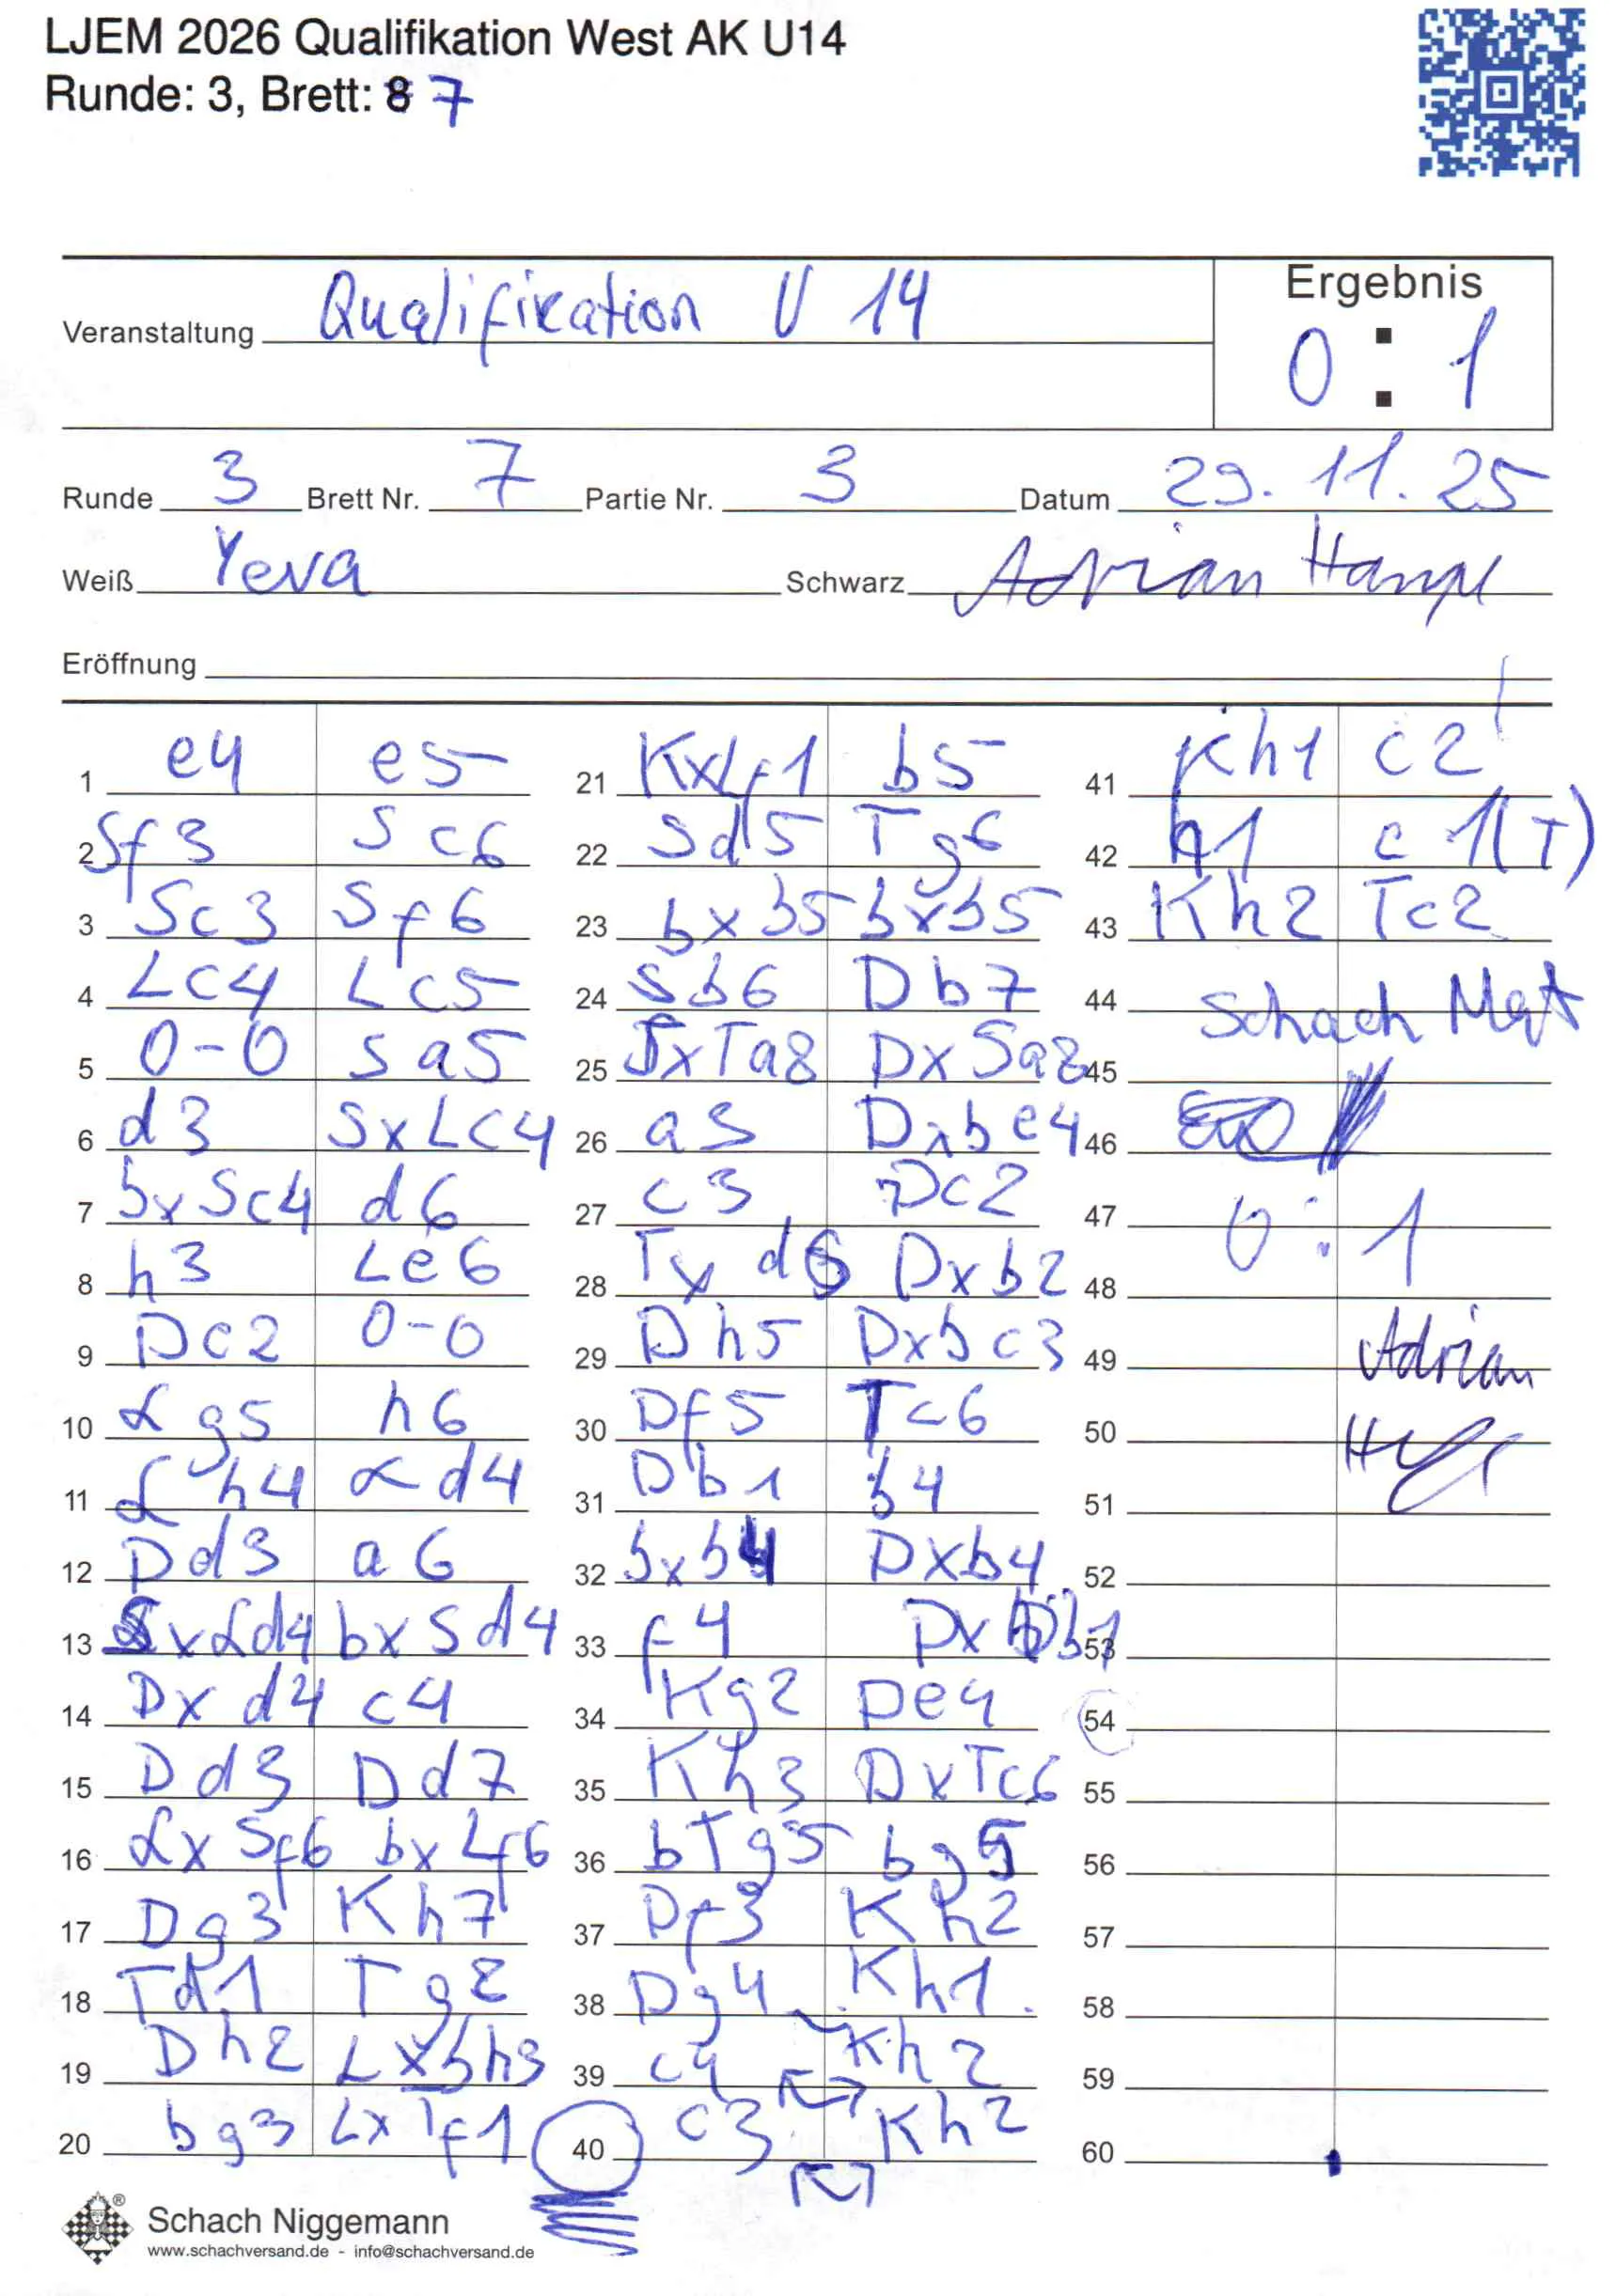 LJEM 2026 Qualifikation West AK U14
Runde: 3, Brett: 8 7
Ergebnis
Veranstaltung Qualifikation U 14
0 : 1
Runde 3 Brett Nr. 7 Partie Nr. 3 Datum 29. 11. 25
Weiß Yeva Schwarz Adrian Hampl
Eröffnung
1 e4 e5
2 Sf3 Sc6
3 Sc3 Sf6
4 Lc4 Lc5
5 0-0 Sa5
6 d3 SxLc4
7 bxSc4 d6
8 h3 Le6
9 Dc2 0-0
10 Lg5 h6
11 Lh4 Ld4
12 Dd3 a6
13 SxLd4 bxSd4
14 Dxd4 c4
15 Dd3 Dd7
16 LxSf6 bxLf6
17 Dg3 Kh7
18 Td1 Tg8
19 Dh2 Lxbh3
20 bg3 LxTf1
21 KxLf1 b5
22 Sd5 Tg6
23 bxb5 bxb5
24 Sb6 Db7
25 SxTa8 DxSa8
26 a3 Dxbe4
27 c3 Dc2
28 Txd6 Dxb2
29 Dh5 Dxbc3
30 Df5 Tc6
31 Db1 b4
32 bxb4 Dxb4
33 f4 DxDb1
34 Kg2 De4
35 Kh3 DxTc6
36 bTg5 bg5
37 Df3 Kh2
38 Dg4 Kh1
39 c4 Kh2
40 c3 Kh2
41 Kh1 c2
42 h1 c1(T)
43 Kh2 Tc2
44 Schach Mat
45
46
47 0 : 1
48
49 Adrian
50
51
52
53
54
55
56
57
58
59
60
Schach Niggemann
www.schachversand.de - info@schachversand.de